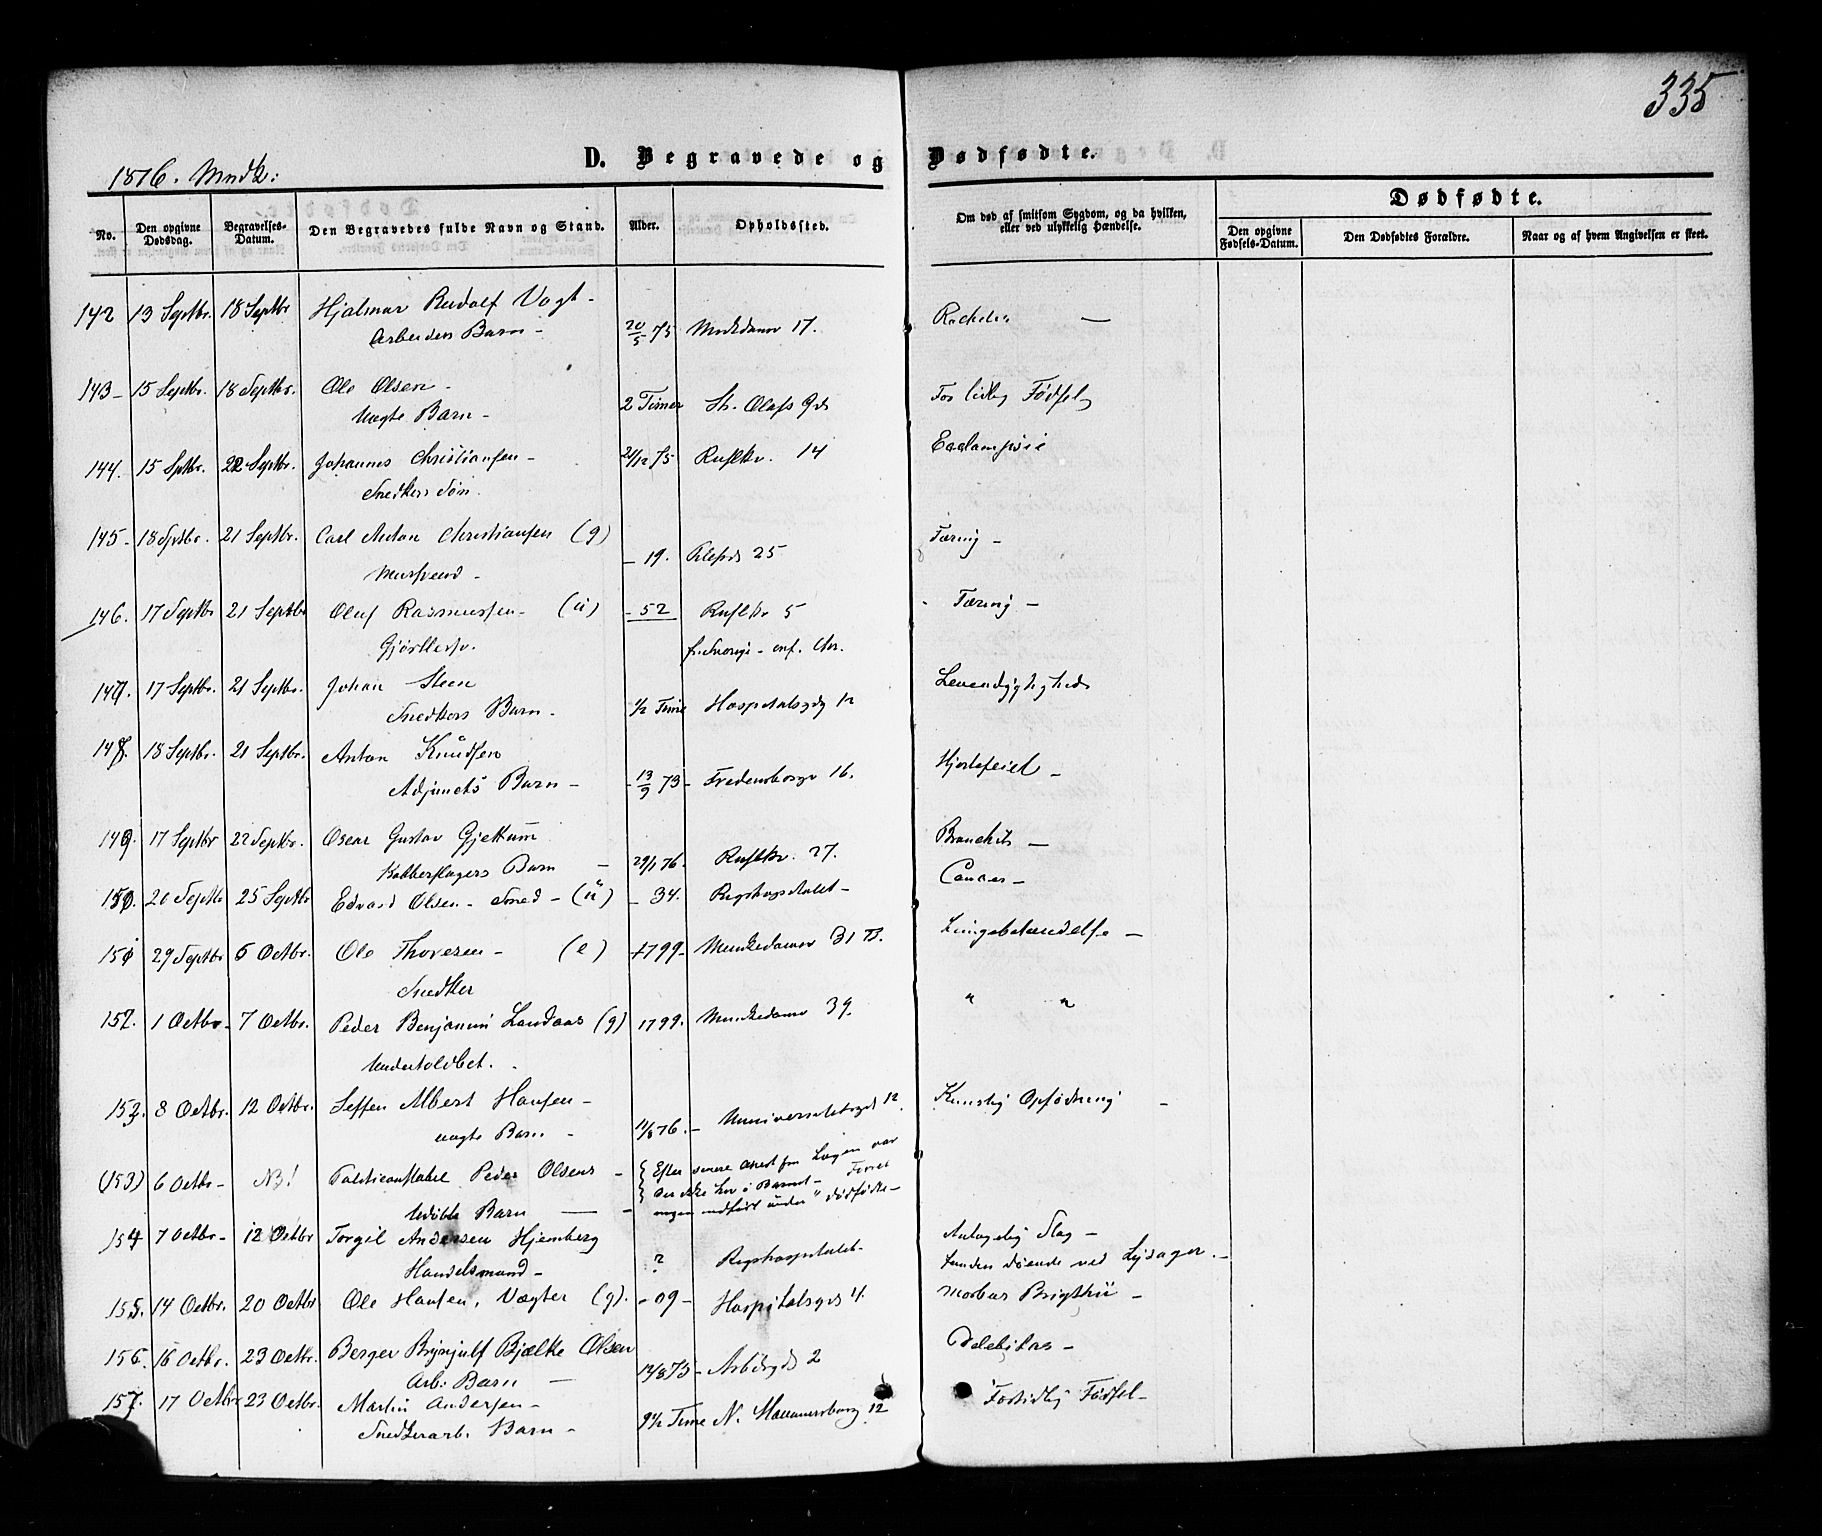 335
D. Begravede og Dødfødte.
1876. Mndk:
Dødfødte.
No.
Den opgivne Dødsdag.
Begravelses-Datum.
Den Begravedes fulde Navn og Stand.
Alder.
Opholdssted.
Om død af smitsom Sygdom, og da hvilken,
eller ved ulykkelig Hændelse.
Den opgivne Fødsels-Datum.
Den Dødfødtes Forældre.
Naar og af hvem Angivelsen er skeet.
142 13 Septbr. 18 Septbr Hjalmar Rudolf Vogt -
Arbeiders Barn - 20/5 75 Munkdamv 17. Rachitis —
143- 15 Septbr. 18 Septbr. Ole Olsen -
Uægte Barn - 2 Timer St. Olafs Gd For tidlig Fødsel
144. 15 Sptbr. 22 Septbr. Johannes Christiansen - 21/12 75 Ruslkv. 14 Eclampsie
Snedkers Søn.
145- 18 Sptbr. 21 Septbr. Carl Anton Christiansen (g)
Mursvend - - 19. Pilesd 25 Tæring -
146. 17 Septbr 21 Septbr Oluf Rasmussen - (u) - 52 Ruslkv 5 Tæring -
Gjørtlersv. fr. Sverige - enf. Chr.
147. 17 Septbr. 21 Septbr. Johan Steen
Snedkers Barn - 1/2 Time Hospitalsgd 12 Levendygtighed
148. 18 Septbr. 21 Septbr. Anton Knudsen
Adjuncts Barn - 13/9 73 - Fredensborgv 16. Hjertefeil -
149. 17 Septbr 22 Septbr. Oscar Gustav Gjettum
Kobberslagers Barn - 29/1 76. Ruslkv. 27. Bronchit —
150. 20 Septbr 25 Septbr Edvard Olsen - Smed - (u) - 34. Rigshospitalet - Cancer -
151 29 Septbr 6 Octbr. Ole Thoresen - (e) 1799- Munkedamsv 31 B. Lungebetændelse -
Snedker
152. 1 Octbr- 7 Octbr. Peder Benjamin Landaas (g) 1799. Munkedamsv 39. " "
Undertoldbet.
152. 8 Octbr. 12 Octbr. Seffen Albert Hansen -
uægte Barn - 11/8 76. - Universitetsgd 12. Kunstig Opfødning -
(153) 6 Octbr- NB! Politiconstabel Peder Olsens -
Udøbte Barn — { Efter senere Attest fra Lægen var
der ikke Liv i Barnet -
indført under "Dødfødte -
154 7 Octbr- 12 Octbr Torgil Andersen Hjemberg
Handelsmand - ? Rigshospitalet - Antagelig Slag -
funden døende ved Lysager. -
155. 14 Octbr. 20 Octbr Ole Hansen, Vægter (g). - 09 - Hospitalsgd 4. Morbus Brigthii -
156. 16 Octbr. 23 Octbr. Berger Brynjulf Bjelke Olsen
Arb: Barn — 12/8 75 - Arbiergd 2 Debilitas -
157. 17 Octbr 23 Octbr. Martin Andersen -
Snedkerarb. Barn - 9 1/2 Time N. Hammersborg 12 Fortidlig Fødsel -